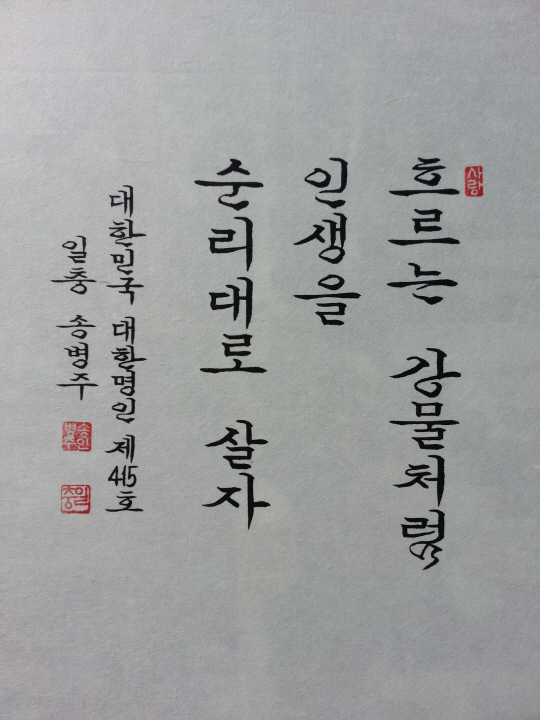 사랑
흐르는 강물처럼
인생을
순리대로 살자
대한민국 대한명인 제415호
일충 송병주